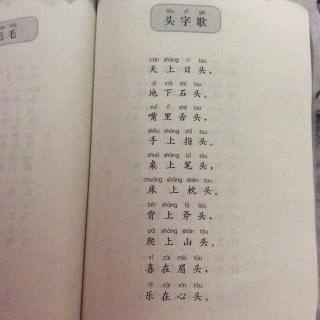 毛
tóu zì gē
头字歌
tiān shàng rì tou
天上日头，
dì xià shí tou
地下石头。
zuǐ lǐ shé tou
嘴里舌头，
shǒu shàng zhǐ tou
手上指头。
zhuō shàng bǐ tóu
桌上笔头，
chuáng shàng zhěn tou
床上枕头。
bēi shàng fǔ tou
背上斧头，
pá shàng shān tóu
爬上山头。
xǐ zài méi tóu
喜在眉头，
lè zài xīn tóu
乐在心头。